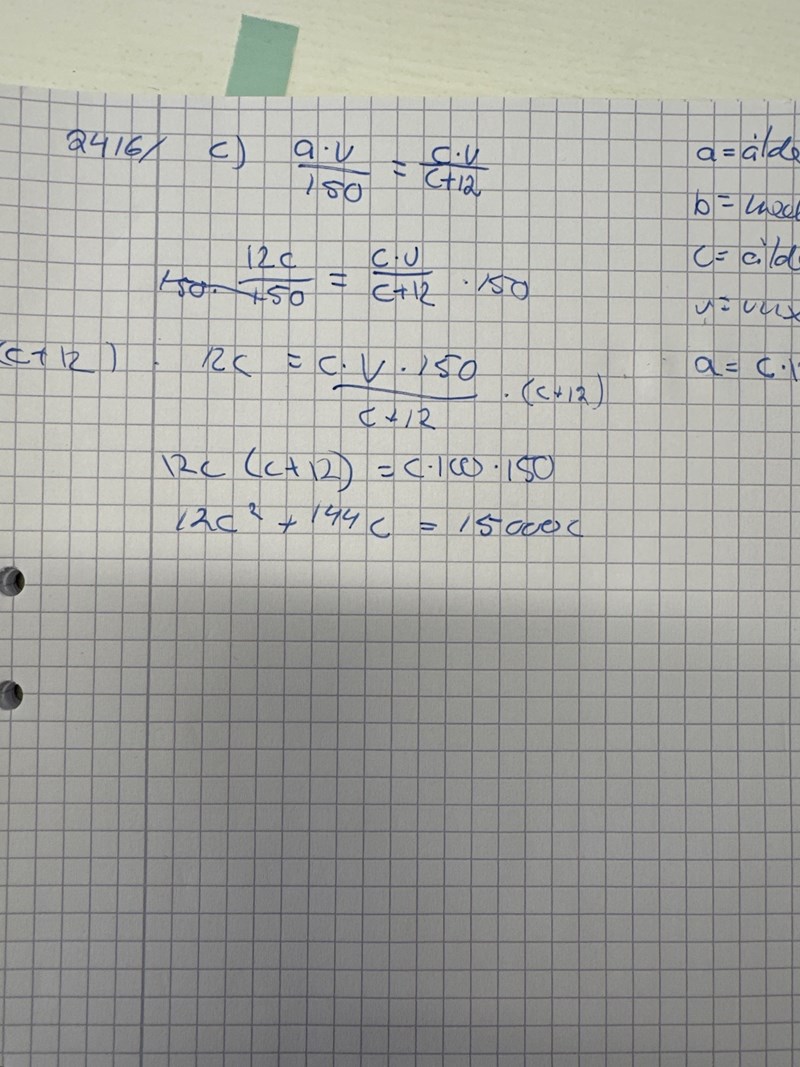 2416/ c) a·v/150 = c·v/c+12
150· 12c/150 = c·v/c+12 ·150
(c+12) · 12c = c·v·150/c+12 ·(c+12)
12c (c+12) = c·100·150
12c² + 144c = 15000c
a = ålde
b =
c = ålde
v = vux
a = c·1